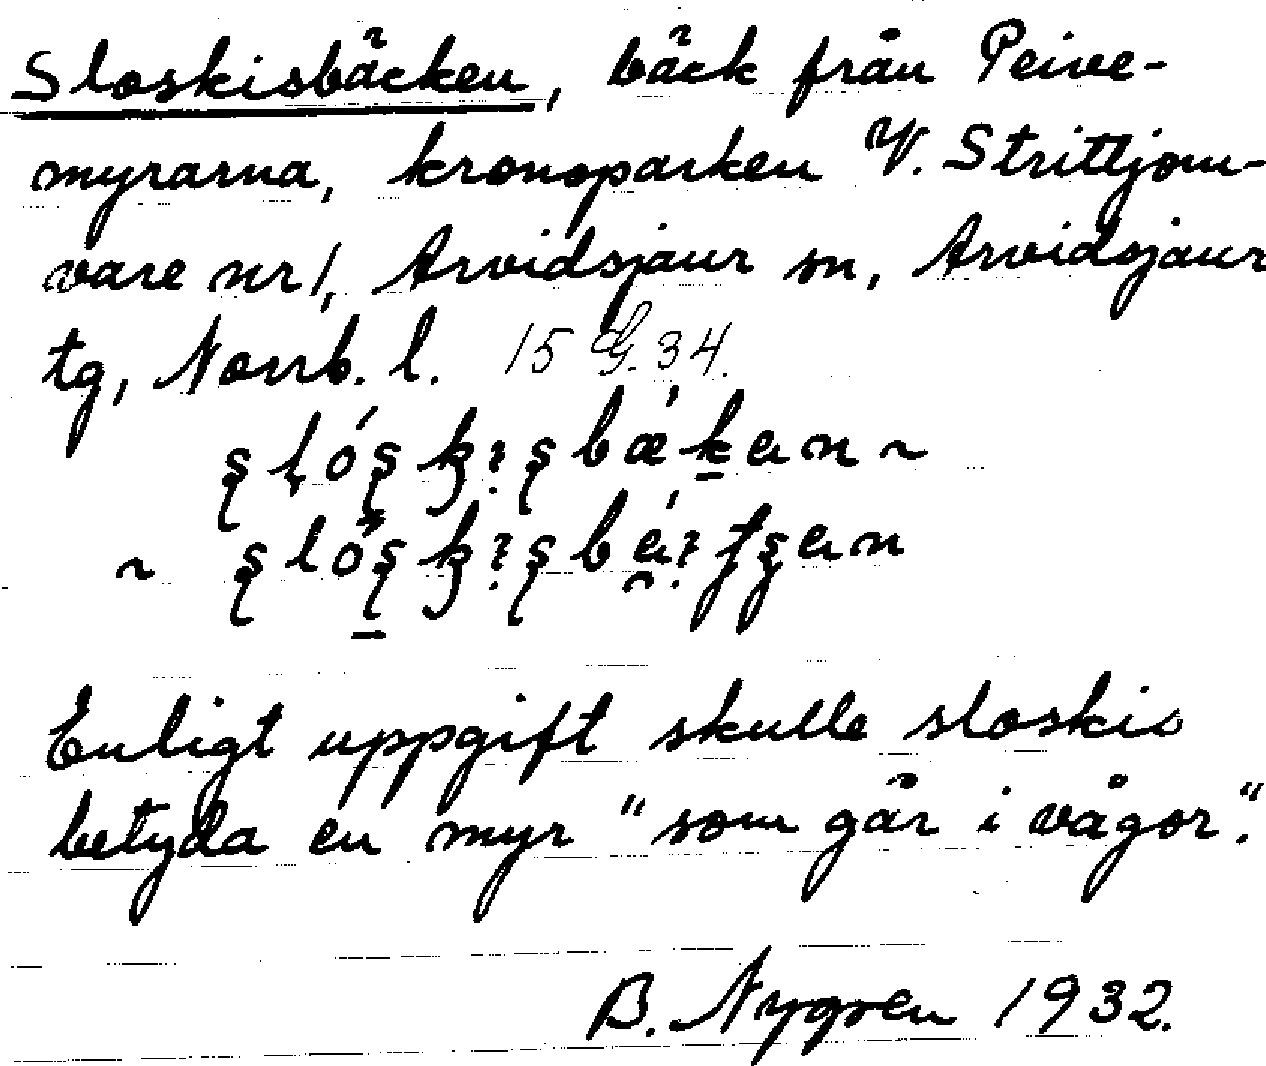 Sloskisbäcken, bäck från Peive-
myrarna, kronoparken V. Strittjom-
vare nr 1, Arvidsjaur sn, Arvidsjaur
tg, Norrb. l. 15 G. 34.
Enligt uppgift skulle sloskis
betyda en myr "som går i vågor".
B. Nygren 1932.